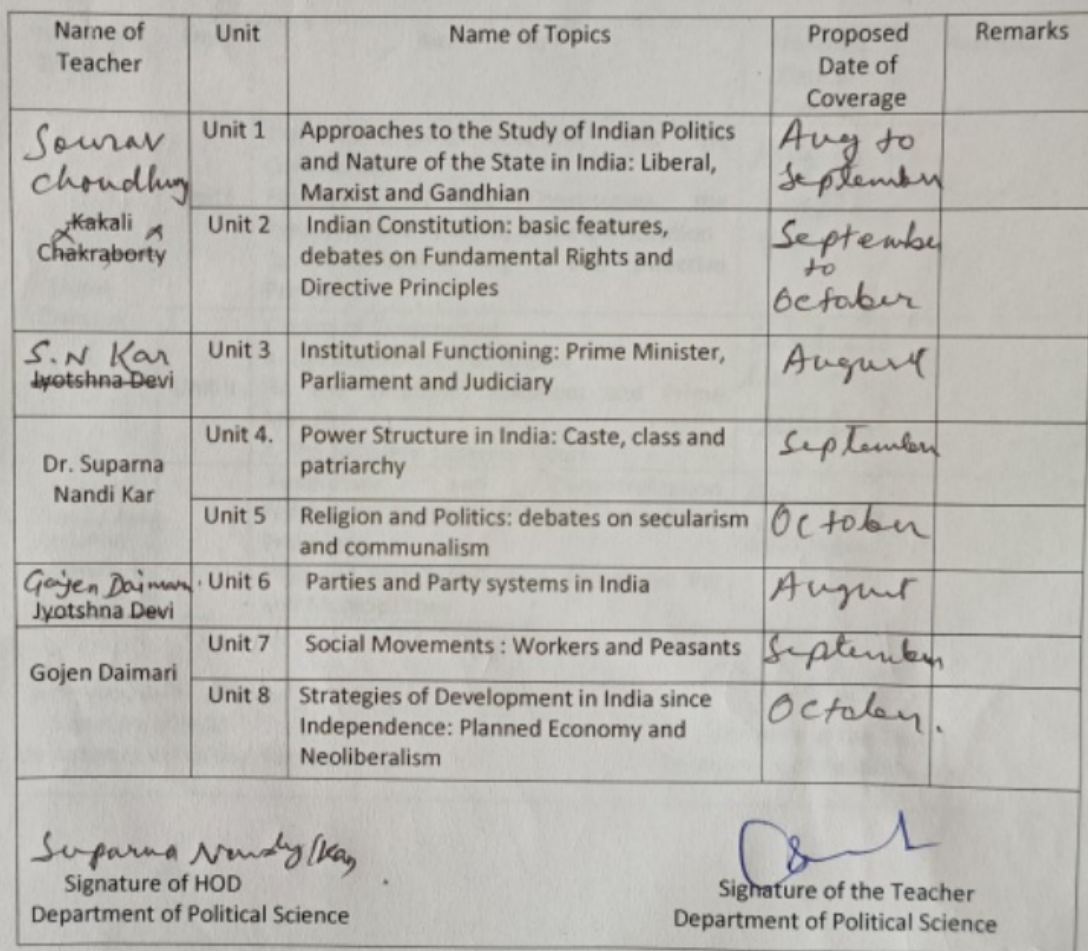 Name of
Teacher
Unit
Name of Topics
Proposed
Date of
Coverage
Remarks
Sourav
Choudhury
Kakali
Chakraborty
Unit 1
Approaches to the Study of Indian Politics
and Nature of the State in India: Liberal,
Marxist and Gandhian
Aug to
September
Unit 2
Indian Constitution: basic features,
debates on Fundamental Rights and
Directive Principles
September
to
October
S.N Kar
Jyotshna Devi
Unit 3
Institutional Functioning: Prime Minister,
Parliament and Judiciary
August
Dr. Suparna
Nandi Kar
Unit 4.
Power Structure in India: Caste, class and
patriarchy
September
Unit 5
Religion and Politics: debates on secularism
and communalism
October
Gojen Daimari
Jyotshna Devi
Unit 6
Parties and Party systems in India
August
Gojen Daimari
Unit 7
Social Movements : Workers and Peasants
September
Unit 8
Strategies of Development in India since
Independence: Planned Economy and
Neoliberalism
October.
Suparna Nandy/Kar
Signature of HOD
Department of Political Science
Signature of the Teacher
Department of Political Science